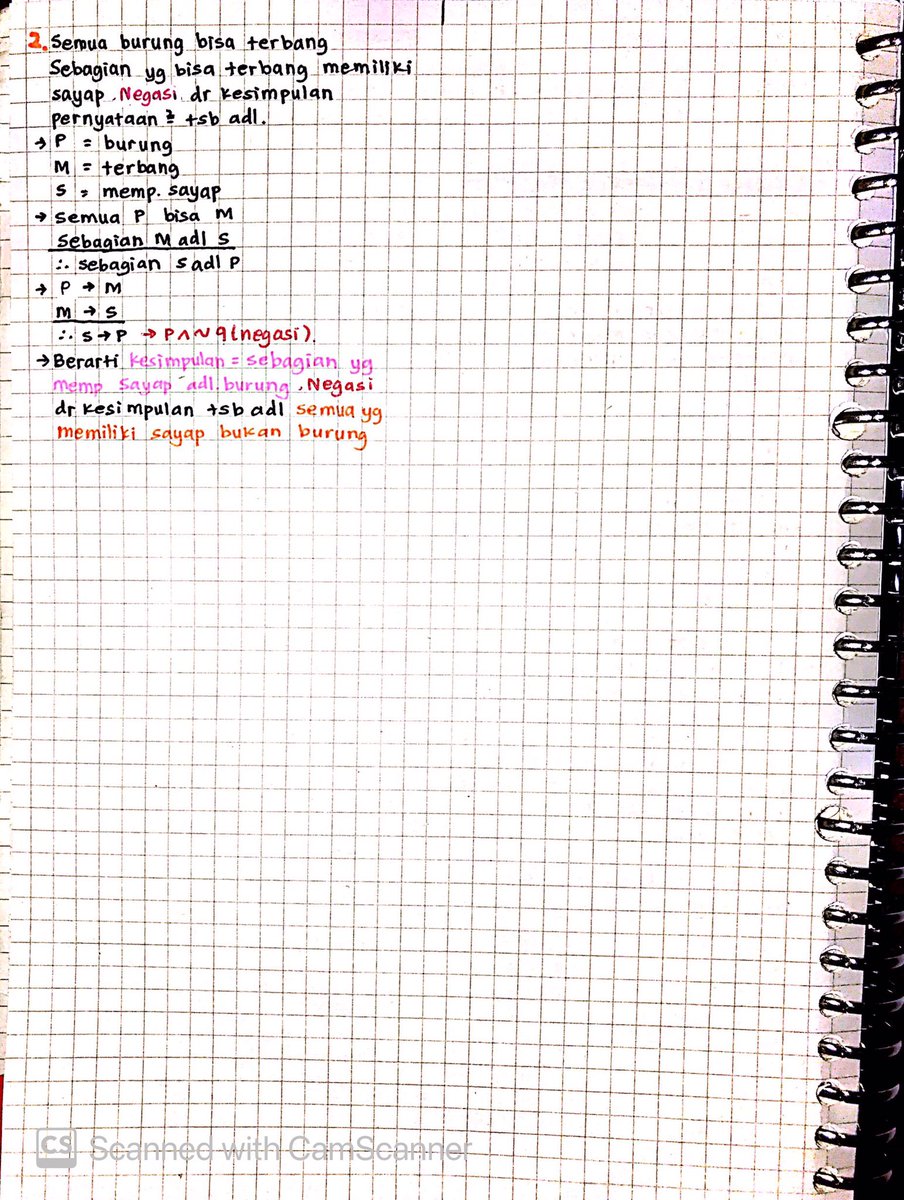 2. Semua burung bisa terbang
Sebagian yg bisa terbang memiliki
sayap. Negasi dr kesimpulan
pernyataan ² tsb adl.
→ P = burung
M = terbang
S = memp. sayap
→ Semua P bisa M
Sebagian M adl S
∴ sebagian S adl P
→ P → M
M → S
∴ S → P → P ∧ ~ q (negasi).
→ Berarti kesimpulan = sebagian yg
memp sayap adl. burung. Negasi
dr kesimpulan tsb adl semua yg
memiliki sayap bukan burung
CS Scanned with CamScanner